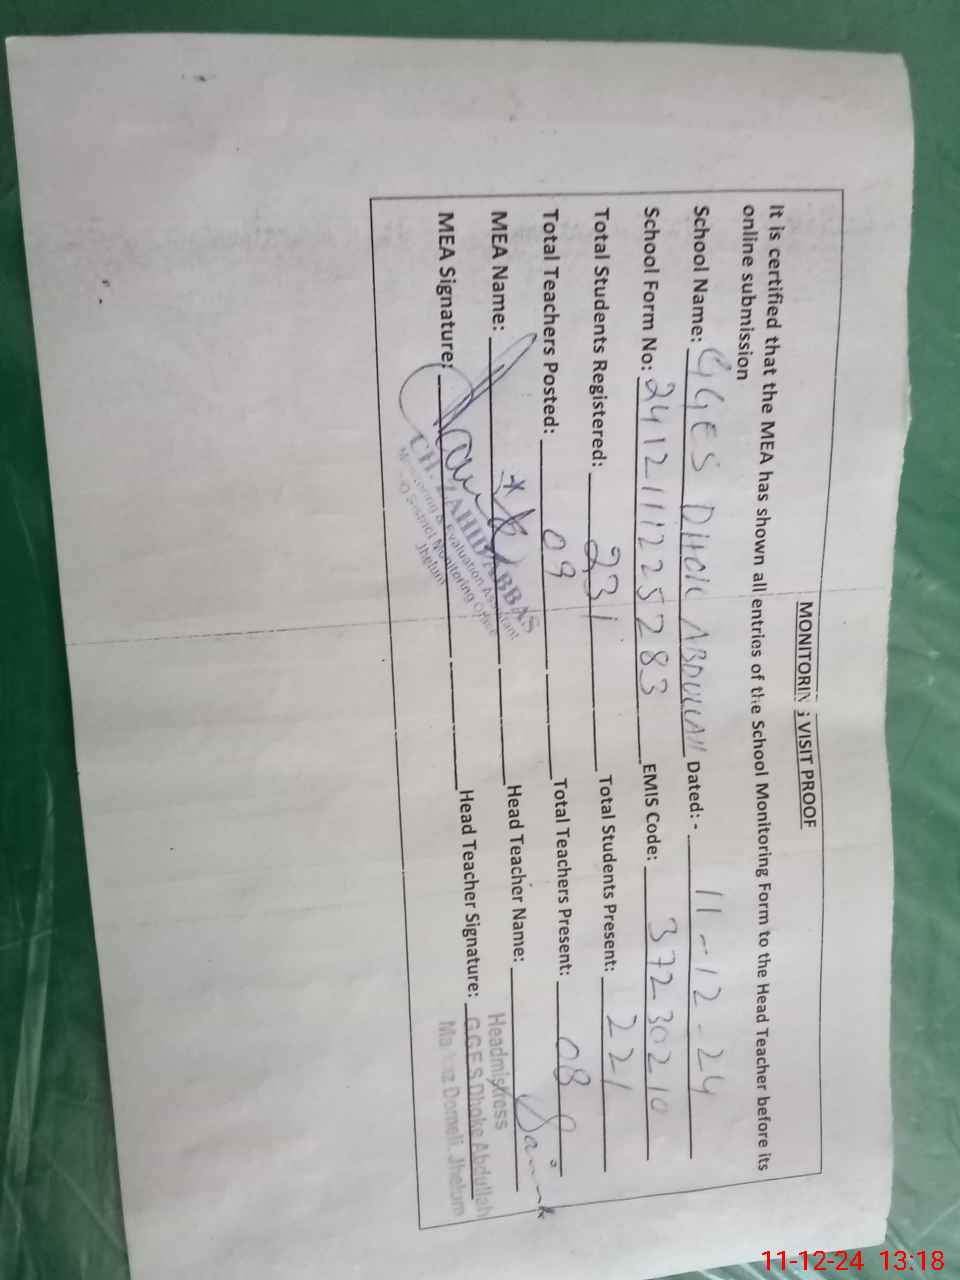 MONITORING VISIT PROOF
It is certified that the MEA has shown all entries of the School Monitoring Form to the Head Teacher before its
online submission
School Name: GGES DHOK ABDULLAH Dated:- 11-12-24
School Form No: 2412111225283 EMIS Code: 37230210
Total Students Registered: 231 Total Students Present: 221
Total Teachers Posted: 09 Total Teachers Present: 08
MEA Name: Head Teacher Name:
MEA Signature: Head Teacher Signature:
CH. ZAHID ABBAS
Monitoring & Evaluation Assistant
District Monitoring Office
Jhelum
Headmistress
G.G.E.S Dhoke Abdullah
Markaz Domeli. Jhelum
11-12-24 13:18